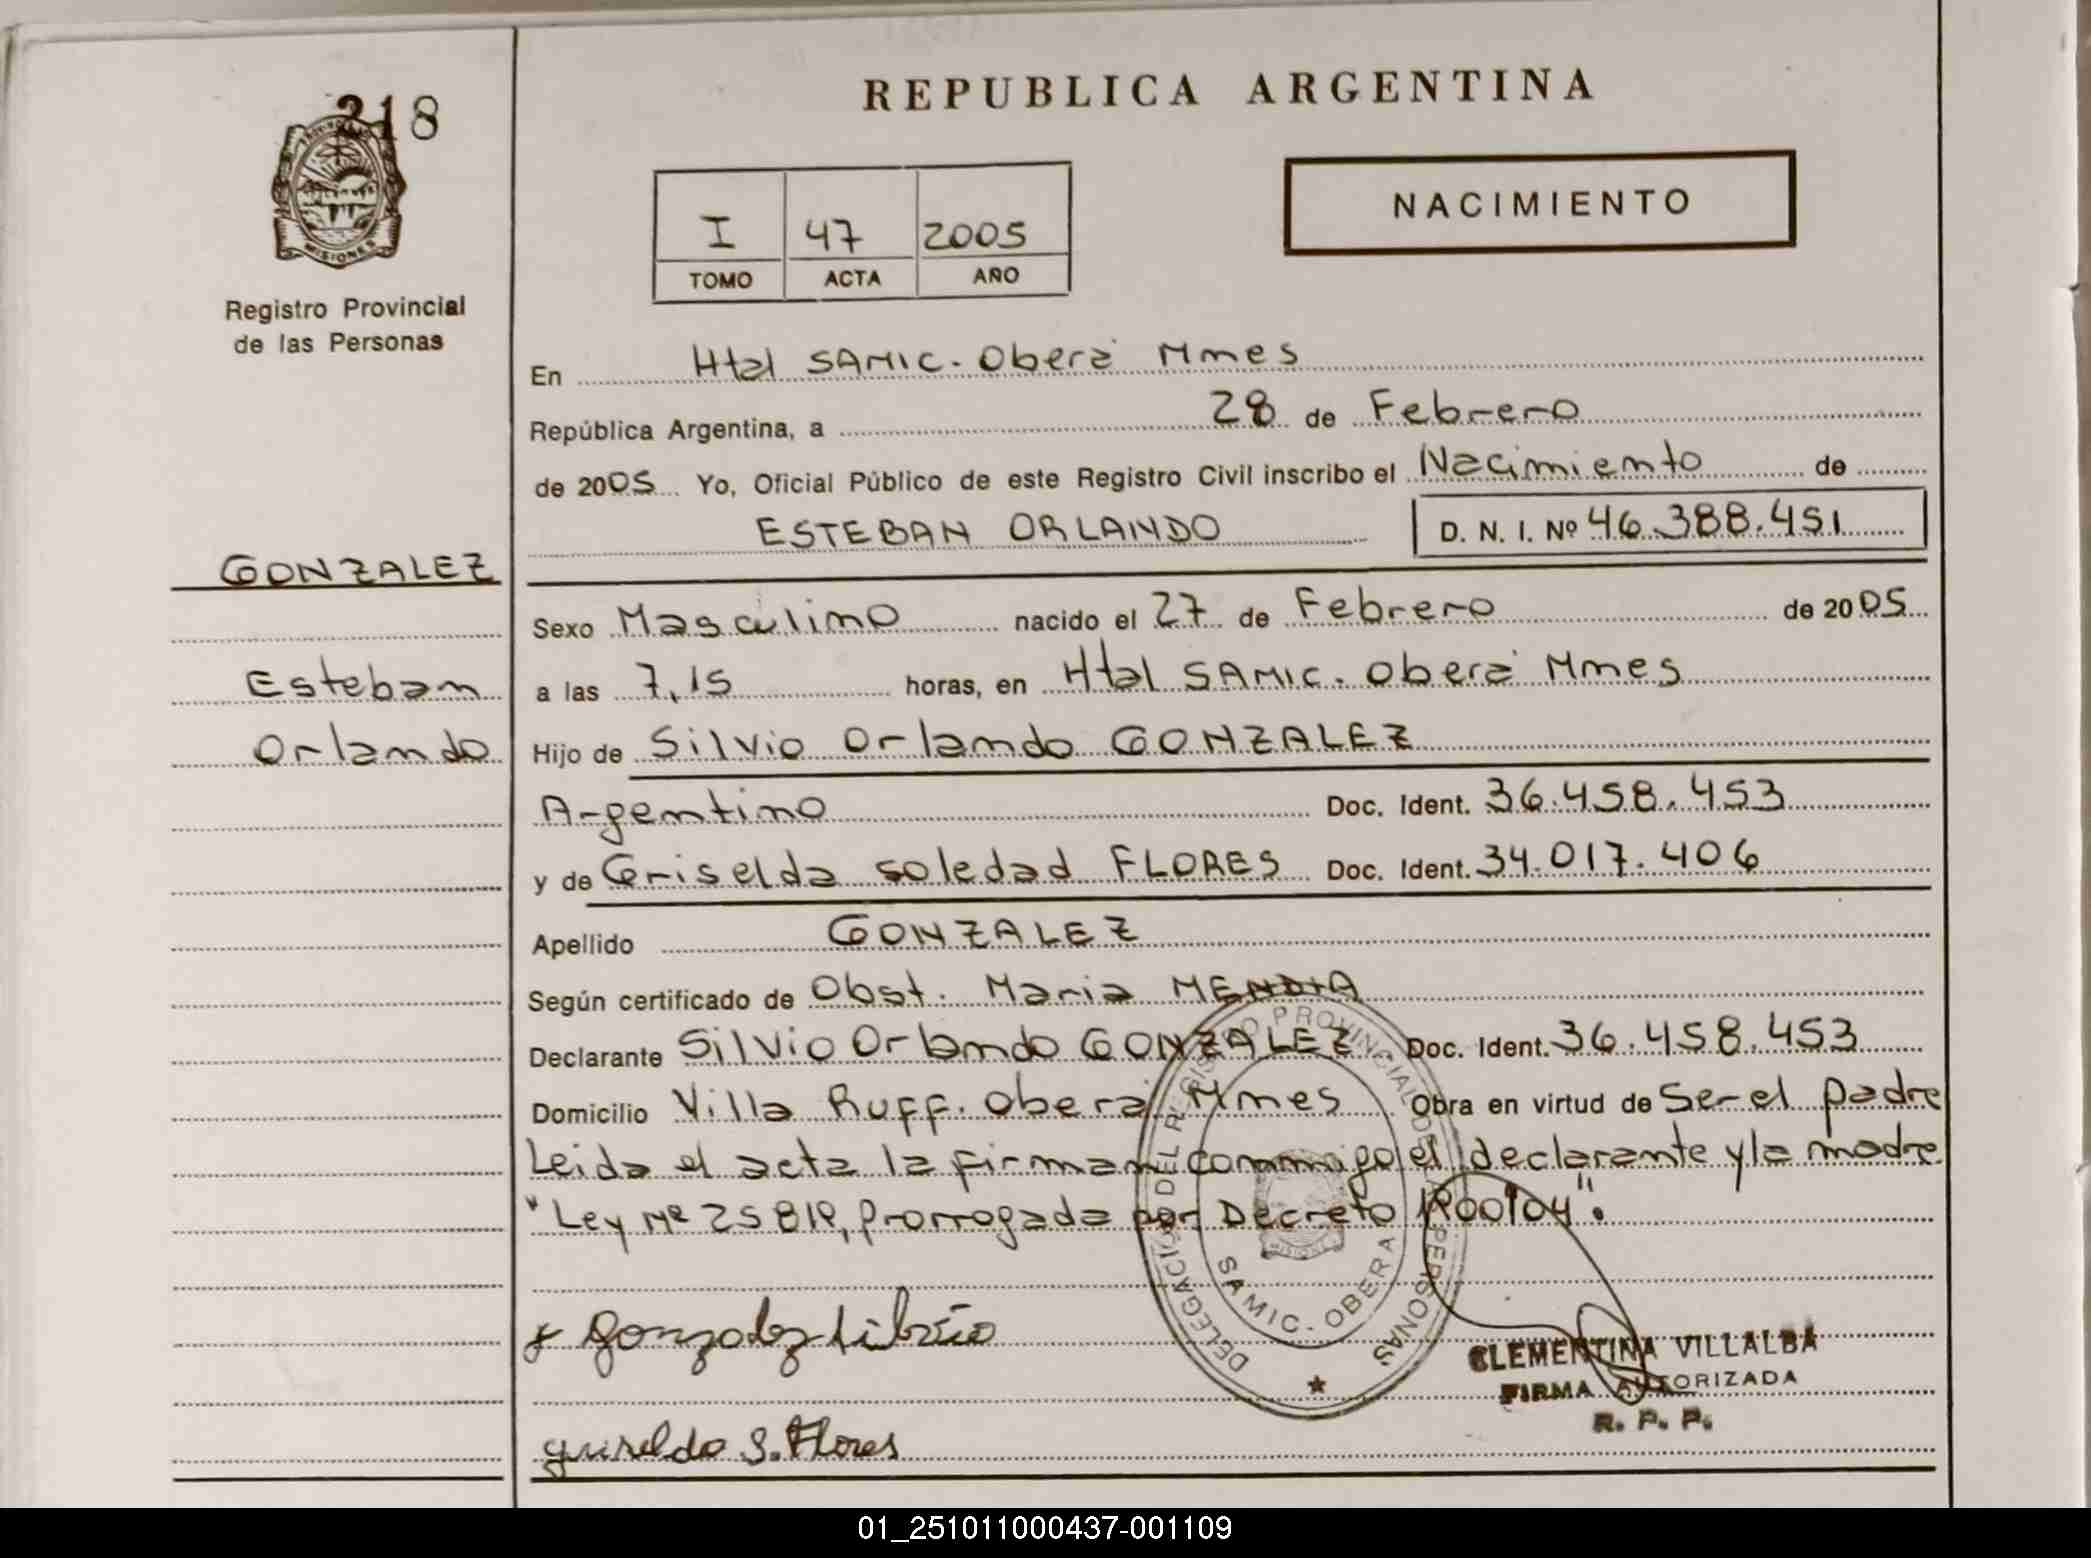 218
REPUBLICA ARGENTINA
NACIMIENTO
I 47 2005
TOMO ACTA AÑO
MISIONES
Registro Provincial
de las Personas
En Htal SAMIC. Oberá Mnes
República Argentina, a 28 de Febrero
de 2005 Yo, Oficial Público de este Registro Civil inscribo el Nacimiento de
ESTEBAN ORLANDO D. N. I. Nº 46.388.451
GONZALEZ
Sexo Masculino nacido el 27 de Febrero de 2005
Esteban
Orlando
a las 7,15 horas, en Htal SAMIC. Oberá Mnes
Hijo de Silvio Orlando GONZALEZ
Argentino Doc. Ident. 36.458.453
y de Griselda Soledad FLORES Doc. Ident. 34.017.406
Apellido GONZALEZ
Según certificado de Obst. Maria MENDIA
Declarante Silvio Orlando GONZALEZ Doc. Ident. 36.458.453
Domicilio Villa Ruff. Oberá Mnes Obra en virtud de Ser el padre
Leida el acta la firman conmigo el declarante y la madre
"Ley Nº 25819, prorrogada por Decreto 1900/04".
DELEGACION DEL REGISTRO PROVINCIAL DE LAS PERSONAS
SAMIC. OBERA
MISIONES
Gonzalez Silvio
CLEMENTINA VILLALBA
FIRMA AUTORIZADA
R. P. P.
Griselda S. Flores
01_251011000437-001109